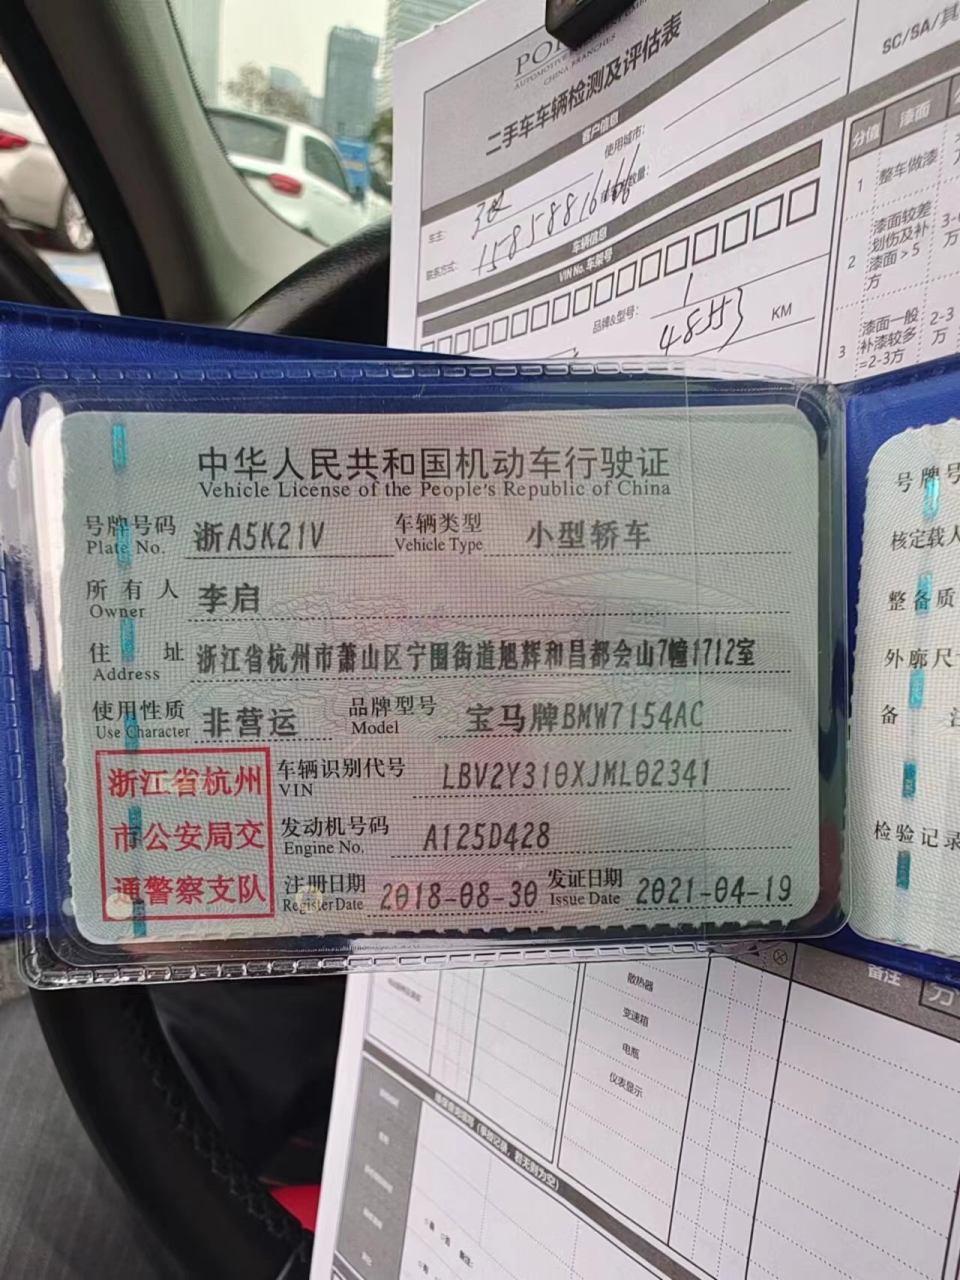 SC/SA/其
二手车车辆检测及评估表
客户信息
使用城市:
车主:
联系方式:
车辆信息
VIN No. 车架号
品牌&型号:
KM
分值 漆面
1 整车做漆
2 漆面较差
划伤及补
漆面>5
方
3 漆面一般
补漆较多
=2-3方
2-3
万
中华人民共和国机动车行驶证
Vehicle License of the People's Republic of China
号牌号码 浙A5K21V 车辆类型 小型轿车
Plate No. Vehicle Type
所有人 李启
Owner
住址 浙江省杭州市萧山区宁围街道旭辉和昌都会山7幢1712室
Address
使用性质 非营运 品牌型号 宝马牌BMW7154AC
Use Character Model
浙江省杭州
市公安局交
通警察支队
车辆识别代号 LBV2Y310XJML02341
VIN
发动机号码 A125D428
Engine No.
注册日期 2018-08-30 发证日期 2021-04-19
Register Date Issue Date
号牌号
核定载人
整备质
外廓尺寸
备 注
检验记录
散热器
变速箱
电瓶
仪表显示
备注